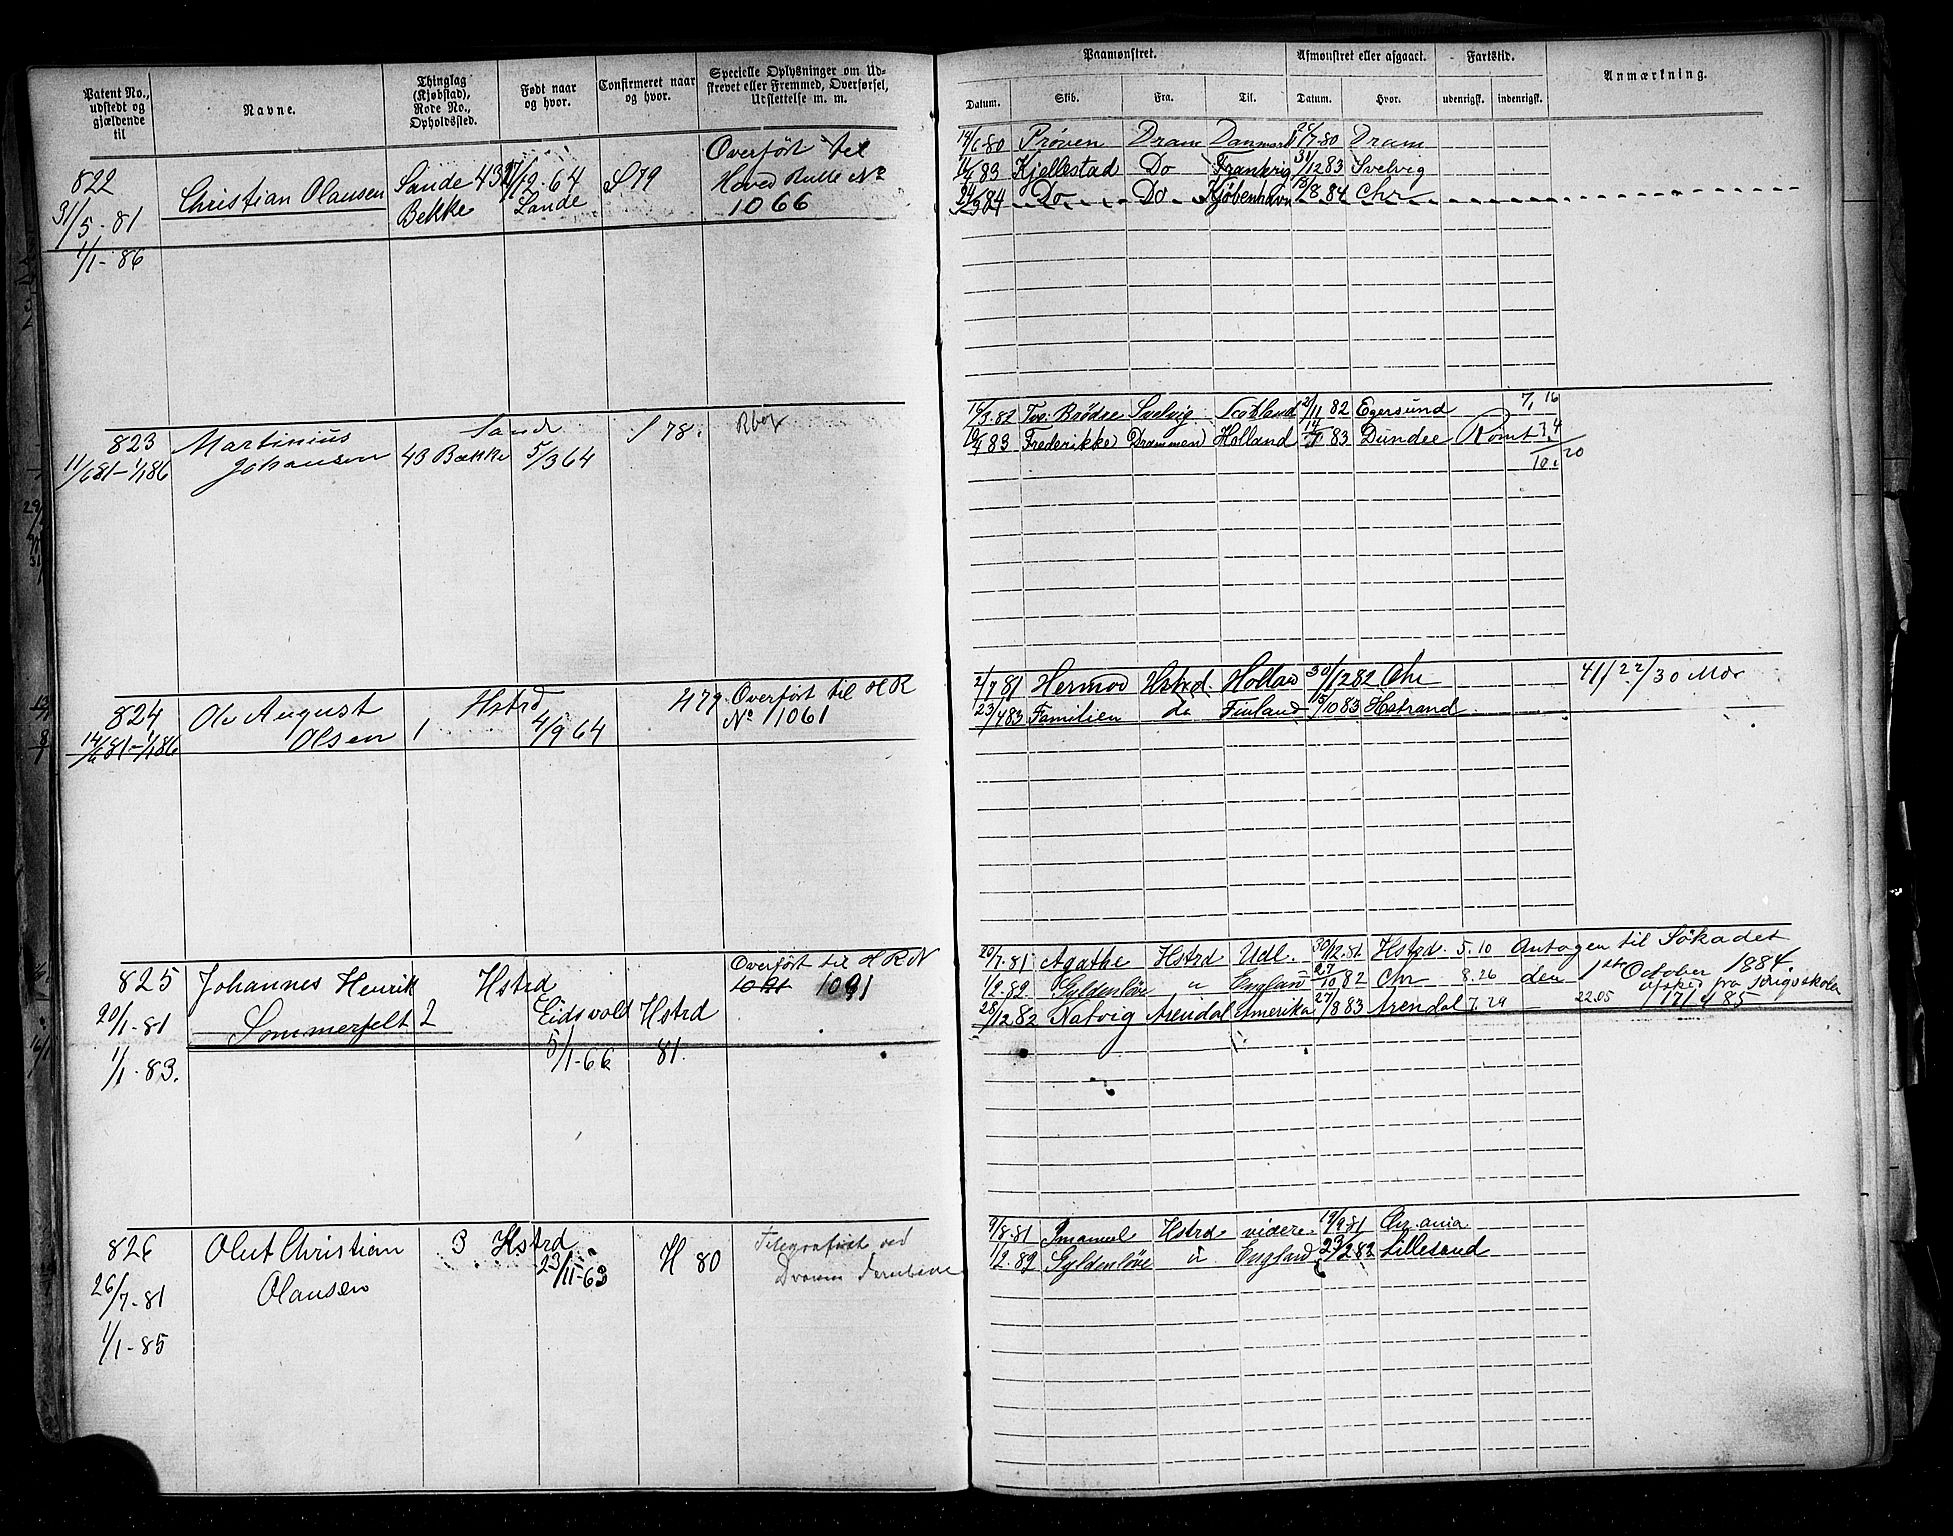 Patent No., udstedt og gjældende til
Navne.
Thinglag (Kjøbstad), Rode No., Opholdssted.
Født naar og hvor.
Confirmeret naar og hvor.
Specielle Oplysninger om Udskrevet eller Fremmed, Overførsel, Udslettelse m. m.
Paamønstret.
Afmønstret eller afgaaet.
Fartstid.
Anmærkning.
Datum. Skib. Fra. Til. Datum. Hvor. udenrigsk. indenrigsk.
822
31/5-81
1/1-86
Christian Olausen
Sande 43
Bekke
/12-64
Sande
S 79
Overført til
Hoved Rulle No
1066
14/6 80 Prøven Dram Danmark /7-80 Dram
83 Kjellestad Do Frankrig 31/12 83 Svelvig
84 Do Do Kjøbenhavn /8 84 Chr
823
11/6 81-1/1 86
Martinius
Johansen
Sande
43 Bække
5/3 64
S 78.
16/3 82 Tvo Brødre Svelvig Scotland /11 82 Egersund 7, 16
/4 83 Frederikke Drammen Holland 14/ 83 Dundee 3.4
10. 20
824
14/6 81-1/1 86
Ole August
Olsen
Hstrd
1
4/9 64
H 79
Overført til HR
No 1061
2/7 81 Hermod Hstrd. Holland 30/12 82 Chr
41/22/30 Mdr
23/4 83 Familien do Finland 15/10 83 Hstrand
825
20/1-81
1/1-83.
Johannes Henrik
Sommerfelt 2
Hstrd
Eidsvold
5/1-66
Hstrd
81.
Overført til H R N
1091
20/7.81 Agathe Hstrd Udl. 30/12.81 Hstrd. 5.10 Antagen til Søkadet
1/2.82 Gyldenløve " England 27/10 82 Chr 8.26 den 1ste October 1884
Afsked fra Krigsskolen
28/12.82 Natvig Arendal Amerika 27/8 83 Arendal 7.29 22.05 17/4 85
826
26/7-81
1/1-85
Olut Christian
Olausen
3 Hstrd
23/11-63
H 80
Telegrafist ved
9/8.81 Imanuel Hstrd videre. 19/9 81 Chr.ania
1/2.82 Gyldenløve " England 23/2 82 Lillesand